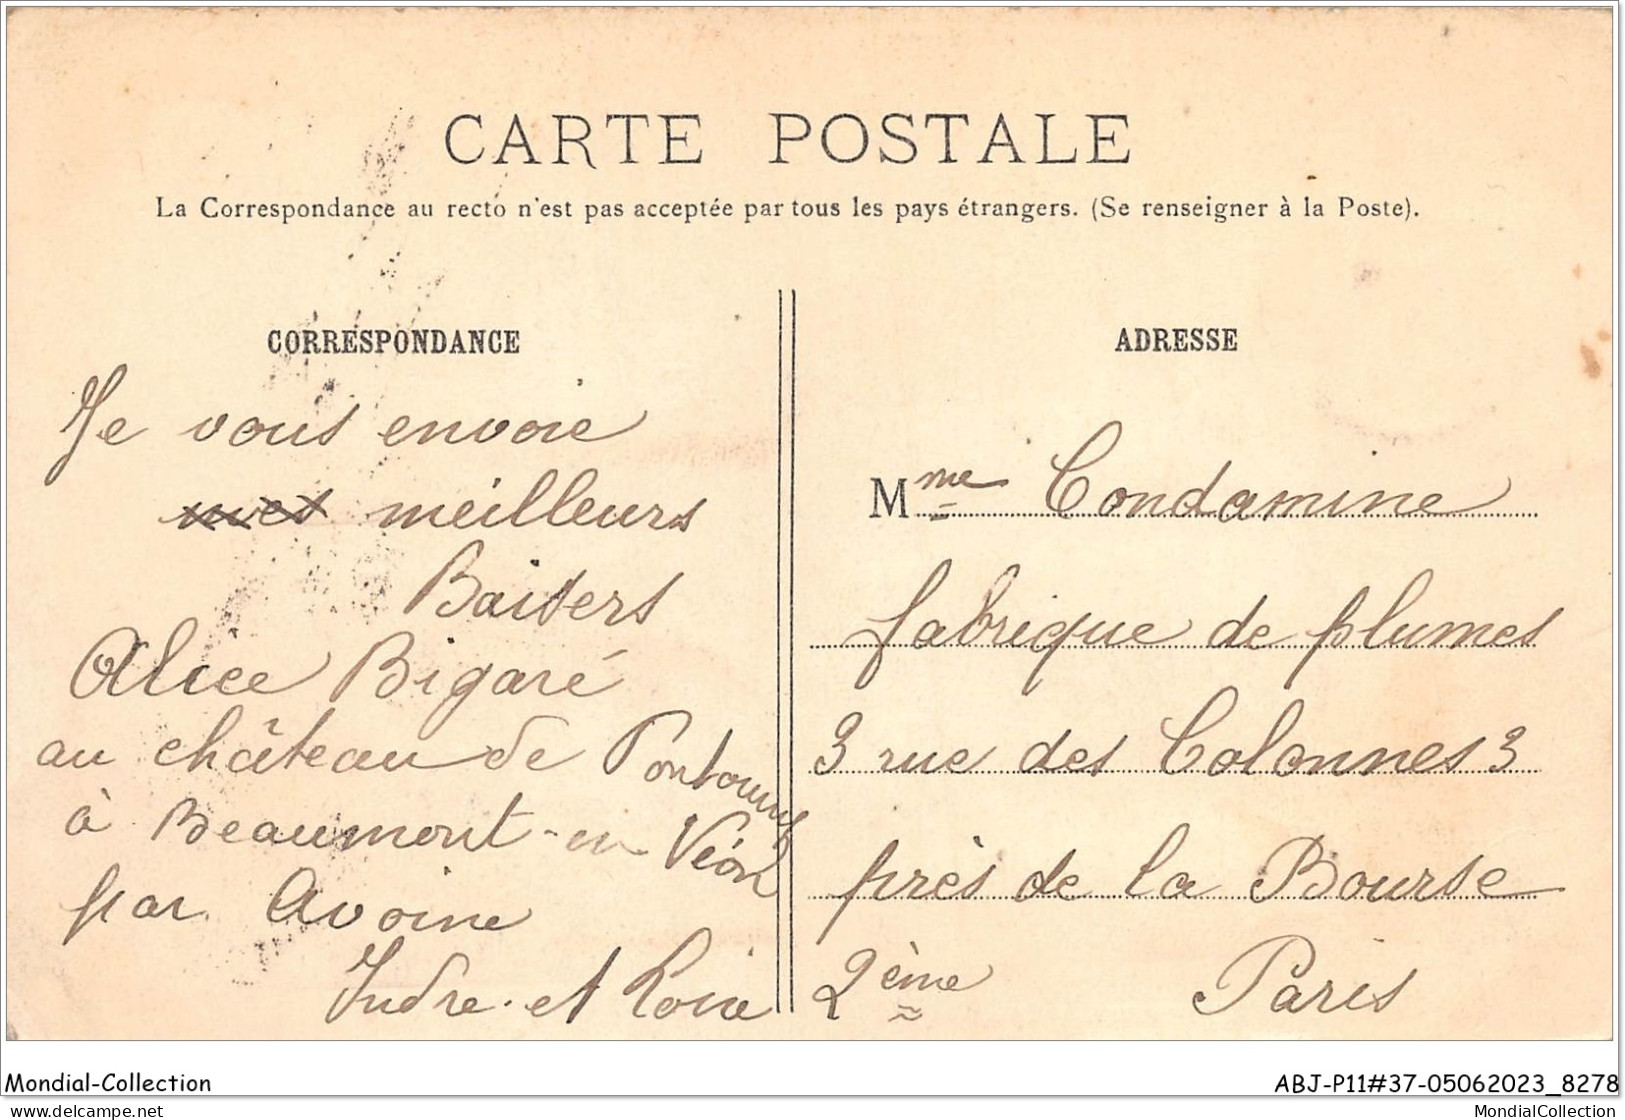 CARTE POSTALE
La Correspondance au recto n'est pas acceptée par tous les pays étrangers. (Se renseigner à la Poste).
CORRESPONDANCE
Je vous envoie
mes meilleurs
Baisers
Alice Bigaré
au château de
à Beaumont-en Véron
par Avoine
Indre et Loire
ADRESSE
Mme Condamine
fabrique de plumes
3 rue des Colonnes 3
près de la Bourse
2ème Paris
Mondial-Collection
ABJ-P11#37-05062023_8278
delcampe.net
MondialCollection